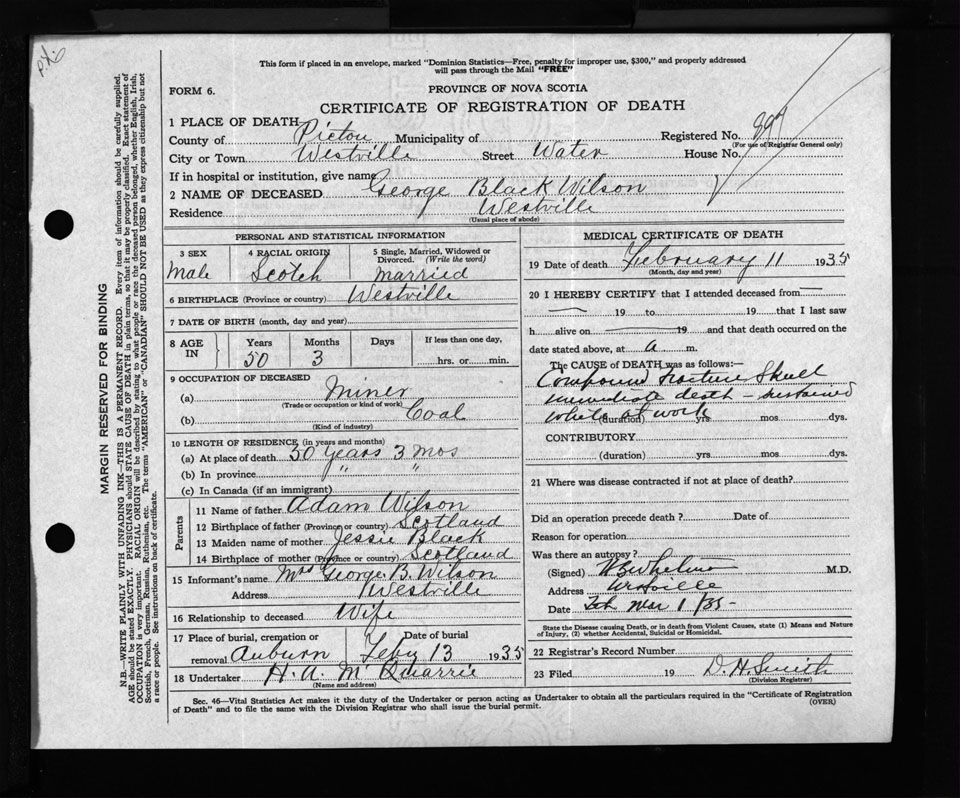 This form if placed in an envelope, marked "Dominion Statistics—Free, penalty for improper use, $300," and properly addressed
will pass through the Mail "FREE"
FORM 6.
PROVINCE OF NOVA SCOTIA
CERTIFICATE OF REGISTRATION OF DEATH
1 PLACE OF DEATH
County of Pictou Municipality of Registered No. 897
(For use of Registrar General only)
City or Town Westville Street Water House No.
If in hospital or institution, give name
2 NAME OF DECEASED George Black Wilson
Residence Westville
(Usual place of abode)
PERSONAL AND STATISTICAL INFORMATION
3 SEX 4 RACIAL ORIGIN 5 Single, Married, Widowed or Divorced. (Write the word)
Male Scotch married
6 BIRTHPLACE (Province or country) Westville
7 DATE OF BIRTH (month, day and year)
8 AGE IN Years Months Days If less than one day,
50 3 hrs. or min.
9 OCCUPATION OF DECEASED
(a) Miner
(Trade or occupation or kind of work)
(b) Coal
(Kind of industry)
10 LENGTH OF RESIDENCE (in years and months)
(a) At place of death 50 years 3 mos
(b) In province " "
(c) In Canada (if an immigrant)
Parents
11 Name of father Adam Wilson
12 Birthplace of father (Province or country) Scotland
13 Maiden name of mother Jessie Black
14 Birthplace of mother (Province or country) Scotland
15 Informant's name Mrs George B. Wilson
Address Westville
16 Relationship to deceased Wife
17 Place of burial, cremation or removal Auburn Date of burial Feby 13 1935
18 Undertaker H. A. McQuarrie
(Name and address)
MEDICAL CERTIFICATE OF DEATH
19 Date of death February 11 1935
(Month, day and year)
20 I HEREBY CERTIFY that I attended deceased from
19 to 19 that I last saw
h alive on 19 and that death occurred on
date stated above, at a m.
The CAUSE of DEATH was as follows:—
Compound Fracture Skull
immediate death - sustained
while at work
(duration) yrs. mos. dys.
CONTRIBUTORY
(duration) yrs. mos. dys.
21 Where was disease contracted if not at place of death?
Did an operation precede death ? Date of
Reason for operation
Was there an autopsy?
(Signed) M.D.
Address Westville
Date Mar 1/35
State the Disease causing Death, or in death from Violent Causes, state (1) Means and Nature
of Injury, (2) whether Accidental, Suicidal or Homicidal.
22 Registrar's Record Number
23 Filed 19 D. H. Smith
(Division Registrar)
Sec. 46—Vital Statistics Act makes it the duty of the Undertaker or person acting as Undertaker to obtain all the particulars required in the "Certificate of Registration
of Death" and to file the same with the Division Registrar who shall issue the burial permit.
(OVER)
MARGIN RESERVED FOR BINDING
N.B.—WRITE PLAINLY WITH UNFADING INK—THIS IS A PERMANENT RECORD. Every item of information should be carefully supplied.
AGE should be stated EXACTLY. PHYSICIANS should STATE CAUSE OF DEATH in plain terms, so that it may be properly classified. Exact statement of
OCCUPATION is very important. RACIAL ORIGIN will be described by stating to what people or race the deceased person belonged, whether English, Irish,
Scottish, French, German, Russian, Ruthenian, etc. The terms "AMERICAN" or "CANADIAN" SHOULD NOT BE USED as they express citizenship but not
a race or people. See instructions on back of certificate.